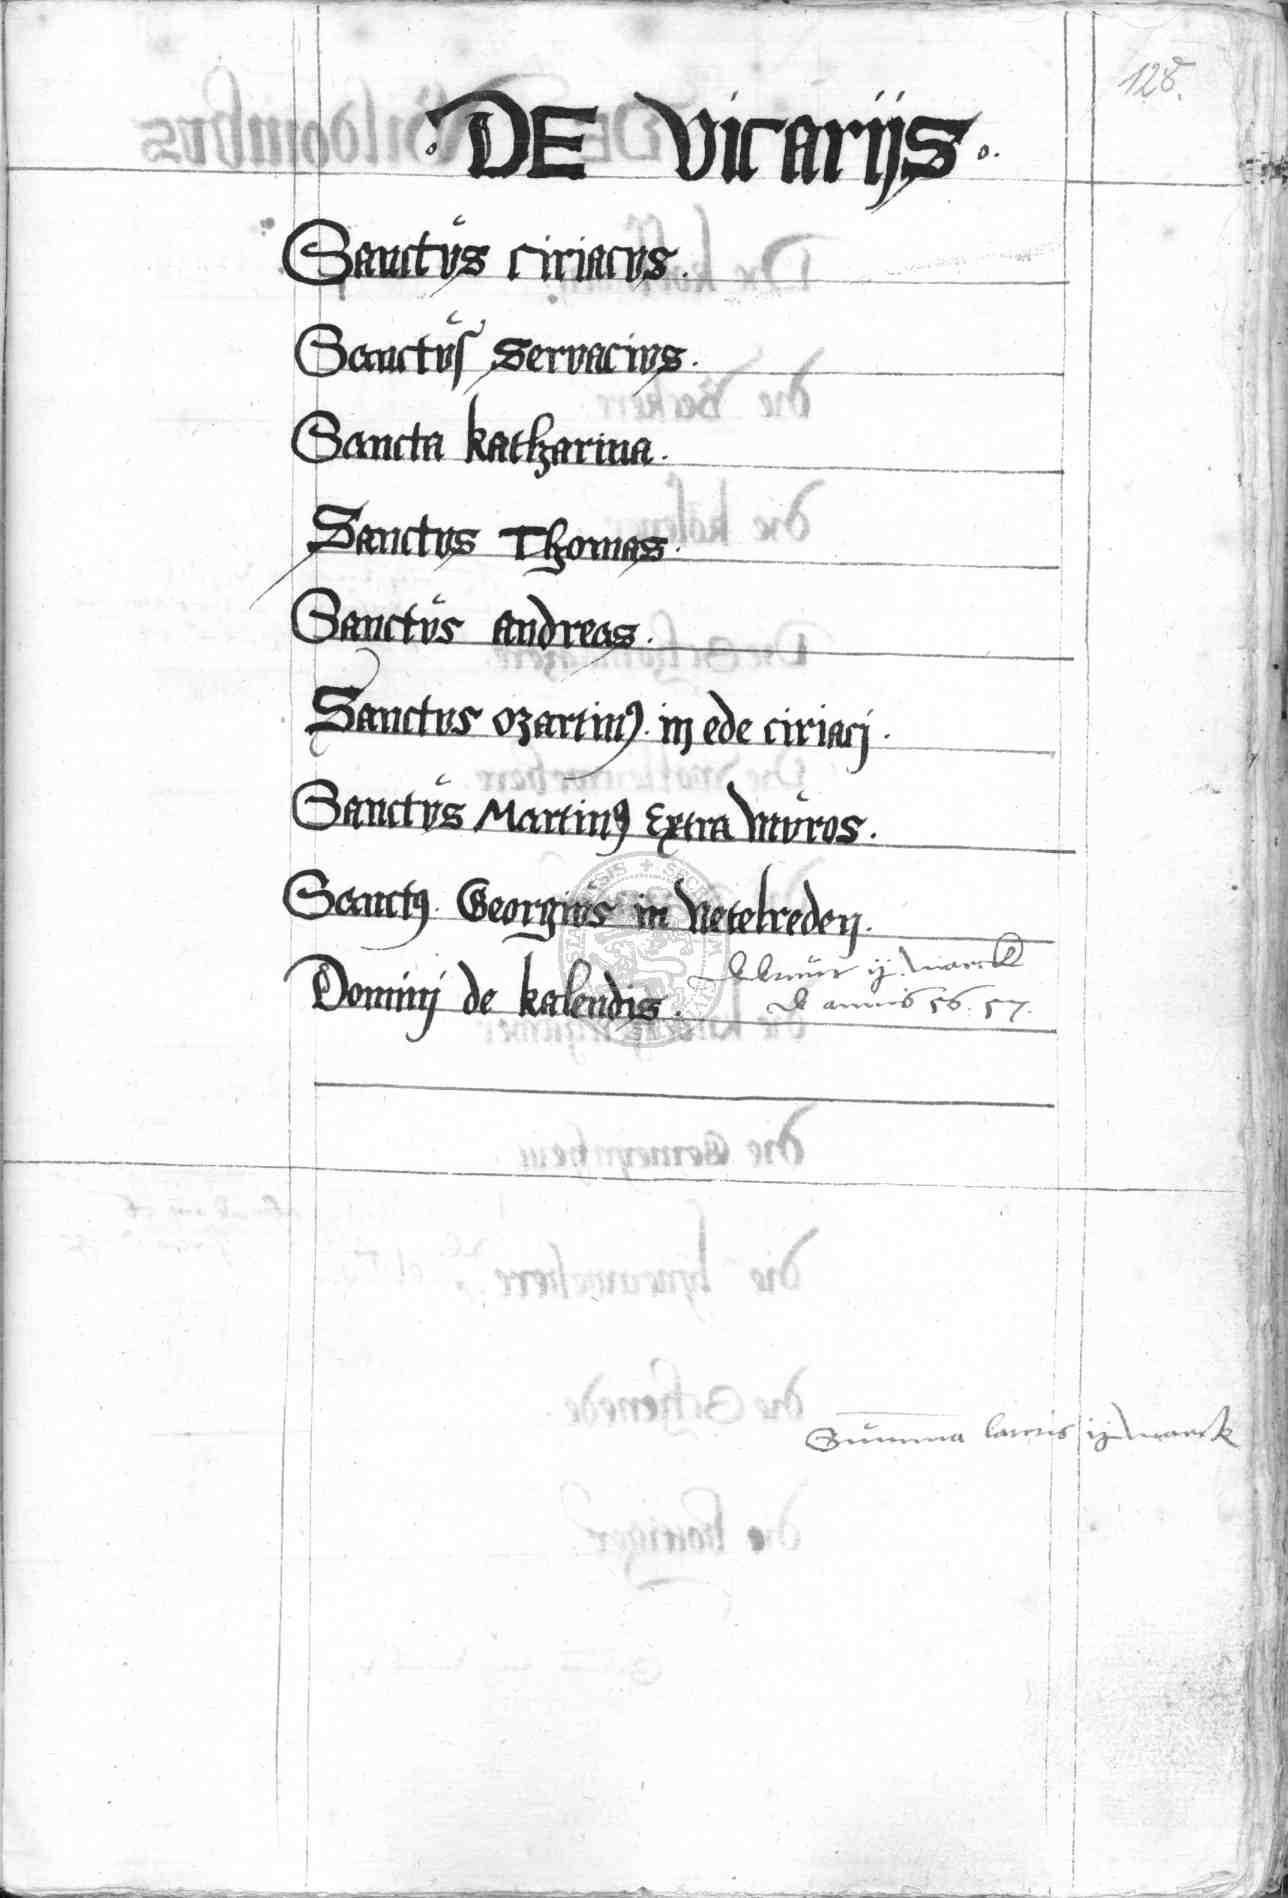 128.
DE Vicarijs
Sanctus ciriacus.
Sanctus Servacius.
Sancta katharina.
Sanctus Thomas.
Sanctus andreas.
Sanctus Martinꝰ. in ede ciriacj.
Sanctus Martinꝰ Extra muros.
Sanctꝰ. Georgius in Netelreden.
dederunt ij marck
Dominj de kalendis.
de annis 56. 57.
Summa lateris ij marck